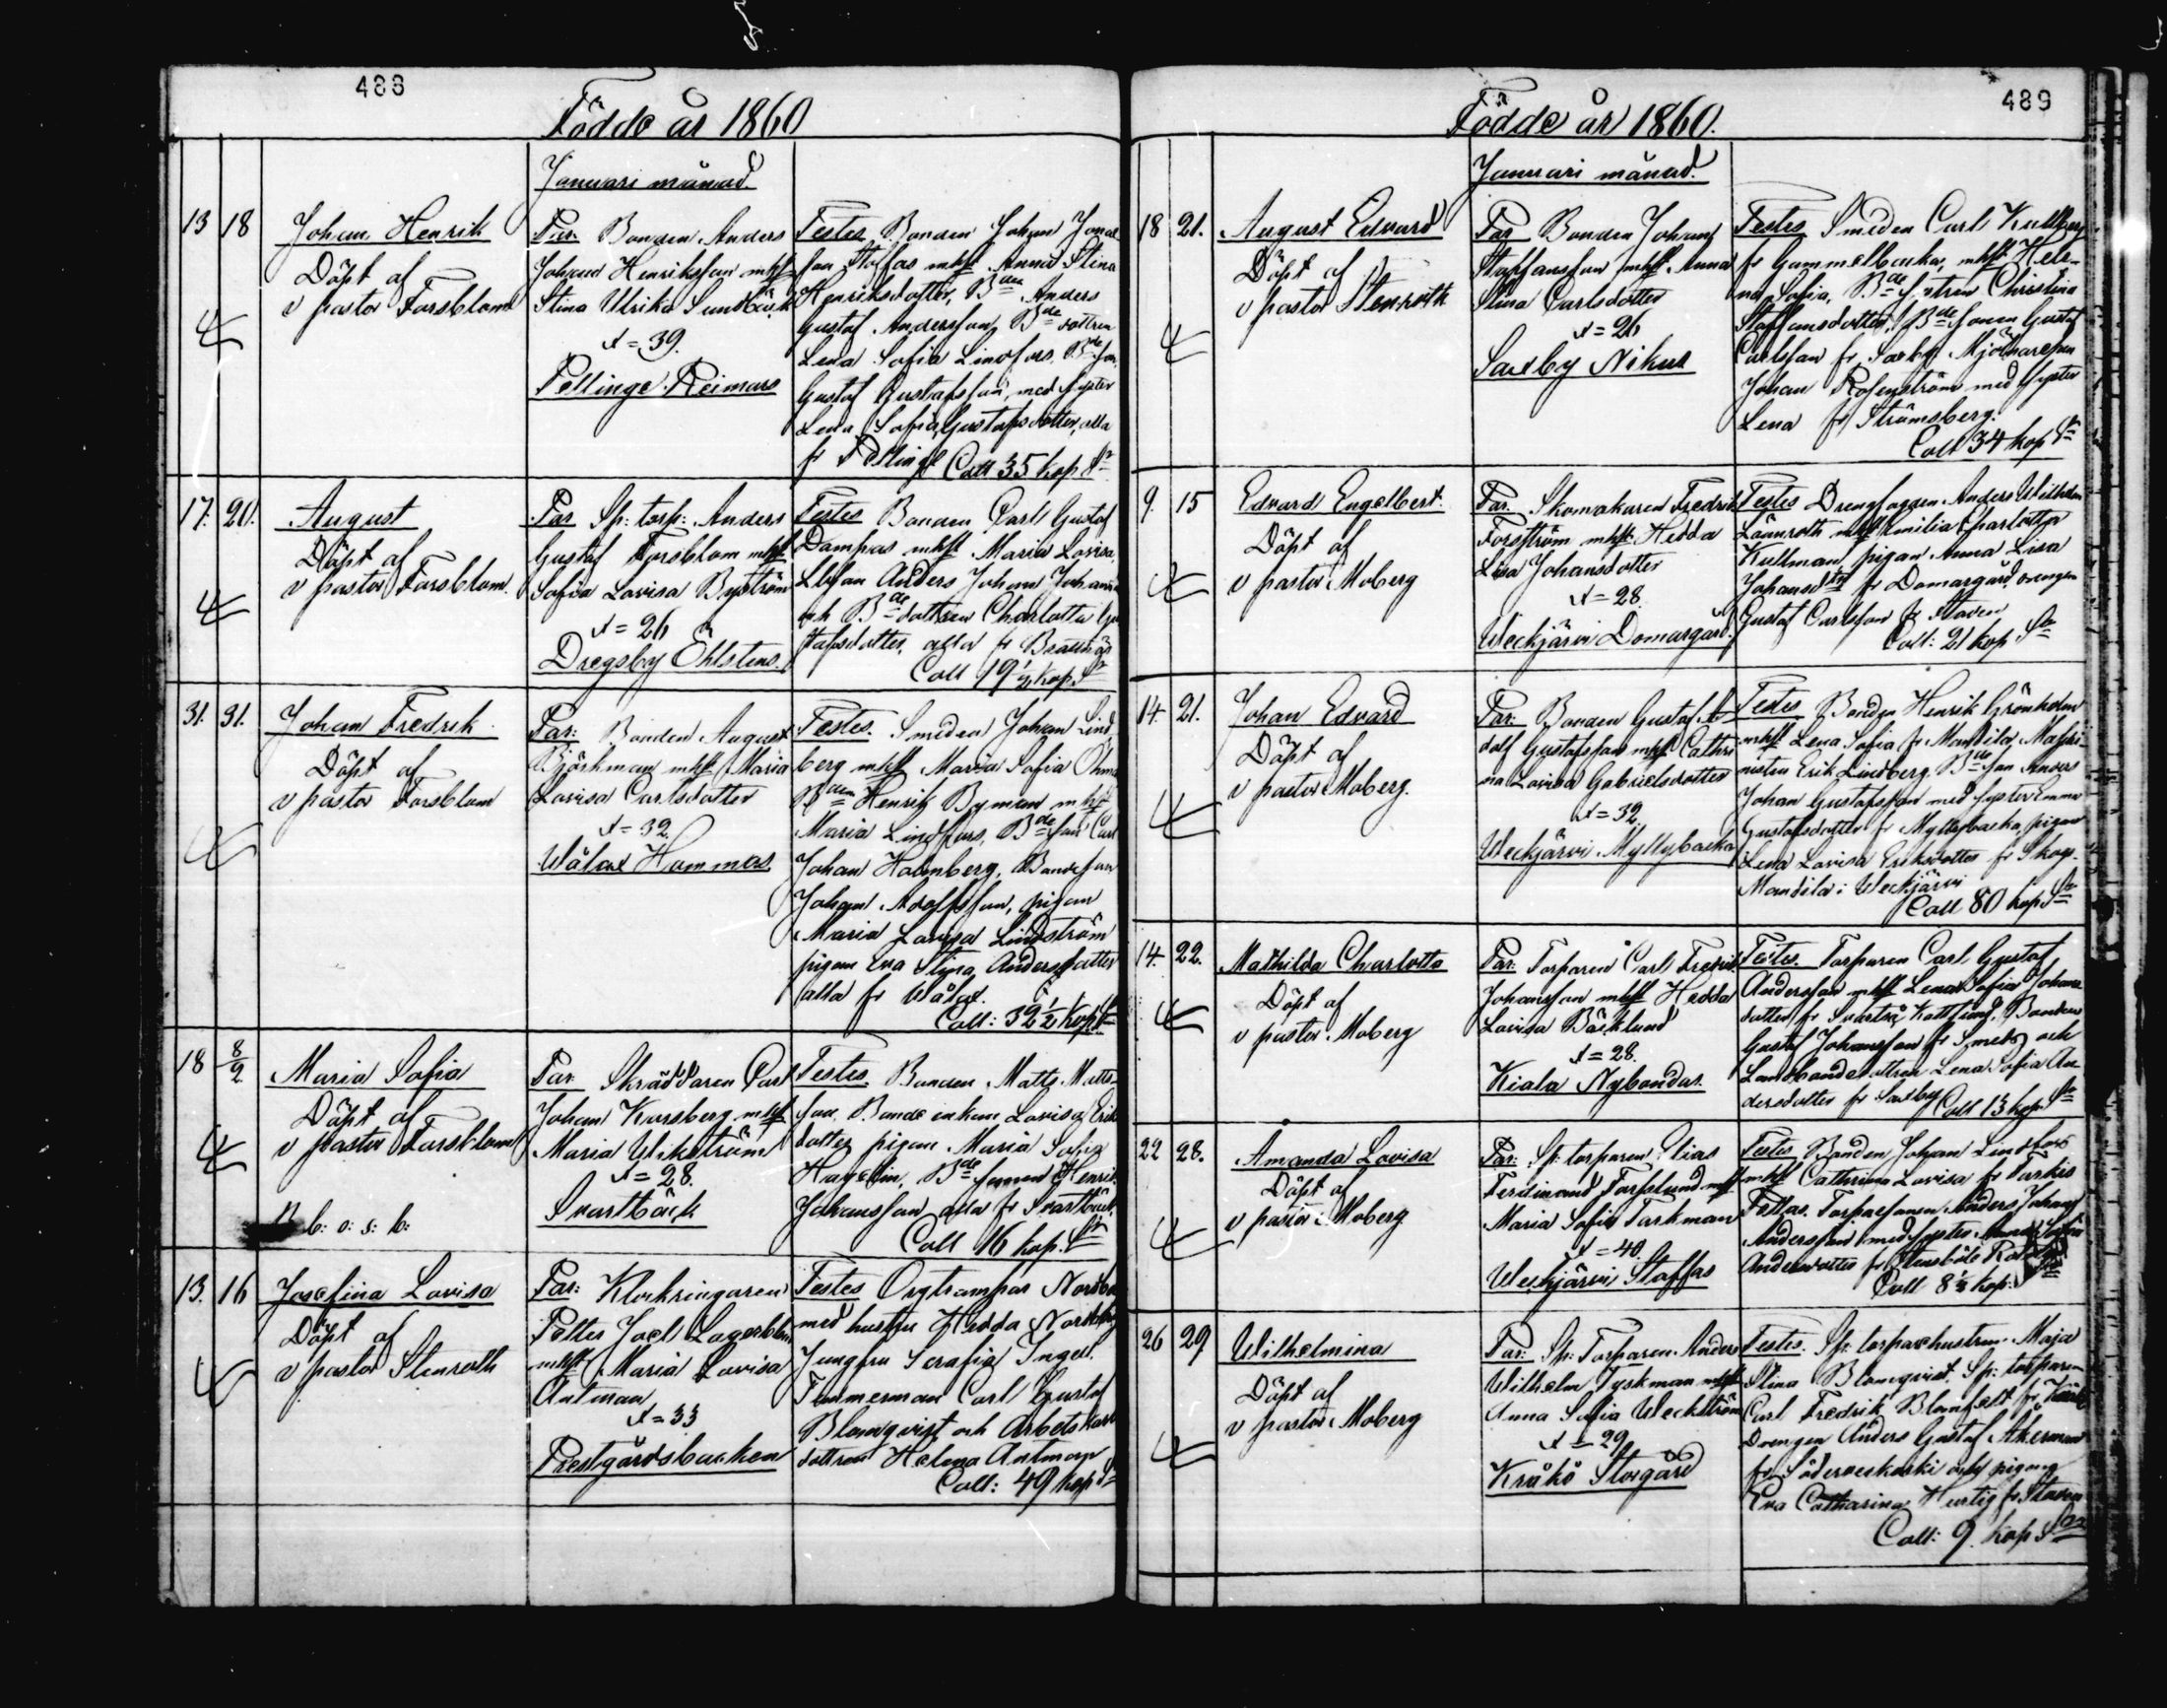 488
Födde år 1860
Januari månad.
13 18 Johan Henrik
Döpt af
v pastor Forsblom
Par. Bonden Anders
Johan Henriksson mhst
Stina Ulrika Sundbäck
x = 39.
Pellinge Reimars
Testes. Bonden Johan Jonas
son Staffas mhst Anna Stina
Henriksdotter, Bden Anders
Gustaf Andersson, Bde dottren
Lena Sofia Linofors. Bde son
Gustaf Gustafsson, med syster
Lena Sofia Gustafsdotter, alla
fr Pellinge Coll 35 kop Sr
17. 20. August
Döpt af
v pastor Forsblom.
Par Sp: torp: Anders
Gustaf Forsblom mhst
Sofia Lovisa Byström
x = 26
Dregsby Öhlstens.
Testes Bonden Carl Gustaf
Dampas mhst Maria Lovisa,
Anders Johan
och Bde dottren Charlotta Gu
stafsdotter, alla fr
Coll 19 1/2 kop. Sr
31. 31. Johan Fredrik
Döpt af
v pastor Forsblom
Par: Bonden August
Björkman mhst Maria
Lovisa Carlsdotter
x = 32.
Wålax Hommas
Testes. Smeden Johan Lind
berg mhst Maria Sofia
Bden Henrik Byman mhst
Maria Lindfors, Bde son Carl
Johan Holmberg, Bondeson
Johan Adolfsson, pigan
Maria Lovisa Lindström
pigan Eva Stina Andersdotter
alla fr Wålax.
Coll: 32 1/2 kop Sr
18 8/2 Maria Sofia
Döpt af
v pastor Forsblom
b: o: s: b:
Par. Skräddaren Carl
Johan Korsberg mhst
Maria Wikström
x = 28.
Svartbäck
Testes. Bonden Matts Matts
son. Bonde enkan Lovisa Eriks
dotter pigan Maria Sofia
Hagelin, Bde sonen Henrik
Johansson alla fr Svartbäck.
Coll 16 kop. Sr
13. 16 Josefina Lovisa
Döpt af
v pastor Stenroth
Par: Klockringaren
Petter Joel Lagerblom
mhst Maria Lovisa
Antman
x = 33
Prestgårdsbacken
Testes Orgtrampar
med hustru Hedda
Jungfru Serafia Ingel.
Timmerman Carl Gustaf
Blomqvist och Arbetskarls
dottren Helena Antman
Coll: 49 kop Sr
489
Födde år 1860.
Januari månad.
18 21. August Edvard
Döpt af
v pastor Stenroth
Par Bonden Johan
Staffansson mhst Anna
Stina Carlsdotter
x = 26
Saxby Nikus
Testes Smeden Carl Kullberg
fr Gammelbacka, mhst Hele-
na Sofia, Bde hustrun Christina
Staffansdotter, Bde sonen Gustaf
Carlsson fr Saxby. Mjölnaresson
Johan Rosenström med syster
Lena fr Strömsberg.
Coll 34 kop Sr
9. 15 Edvard Engelbert.
Döpt af
v pastor Moberg
Par. Skomakaren Fredrik
Forsström mhst Hedda
Lisa Johansdotter
x = 28.
Weckjärvi Domargård.
Testes Drengsagden Anders Wilhelm
Lönnroth mhst Emilia Charlotta
Kullman, pigan Anna Lisa
Johansdtr fr Domargård, drengen
Gustaf Carlsson fr Staven
Coll: 21 kop Sr
14. 21. Johan Edvard
Döpt af
v pastor Moberg.
Par. Bonden Gustaf A-
dolf Gustafsson mhst Cathri
na Lovisa Gabrielsdotter
x = 32.
Weckjärvi Myllybacka
Testes Bonden Henrik Grönholm
mhst Lena Sofia fr Mondila, Maschi
nisten Erik Lindberg. Bde son Anders
Johan Gustafsson med syster Emma
Gustafsdotter fr Myllybacka, pigan
Lena Lovisa Eriksdotter fr Skogs-
Mondila i Weckjärvi
Coll 80 kop Sr
14. 22. Mathilda Charlotta
Döpt af
v pastor Moberg
Par: Torparen Carl Fredrik
Johansson mhst Hedda
Lovisa Bäcklund
x = 28.
Kiala Nybondas.
Testes. Torparen Carl Gustaf
Andersson mhst Lena Sofia Johans
dotter fr Svartså Kattluns, Bonden
Gustaf Johansson fr Smeds och
Landbondedottren Lena Sofia An
dersdotter fr Saxby Coll 13 kop Sr
22 28. Amanda Lovisa
Döpt af
v pastor Moberg
Par: Sp: torparen Elias
Ferdinand Forslund mhst
Maria Sofia Tarkman
x = 40.
Weckjärvi Staffas
Testes Bonden Johan Lindfors
mhst Cathrina Lovisa fr Tarkis
Tollas. Torparsonen Anders Johan
Andersson med syster Anna Sofia
Andersdotter fr Stensböle
Coll 8 1/2 kop.
26 29 Wilhelmina
Döpt af
v pastor Moberg
Par: Sp: Torparen Anders
Wilhelm Tyskman mhst
Anna Sofia Weckström
x = 29
Kråkö Storgård
Testes. Sp: torparehustrun Maja
Stina Blomqvist. Sp: torparen
Carl Fredrik Blomfelt fr
Drengen Anders Gustaf Åkerman
fr Söderveckoski och pigan
Eva Catharina Hurtig fr Staven
Coll: 9. kop Sr